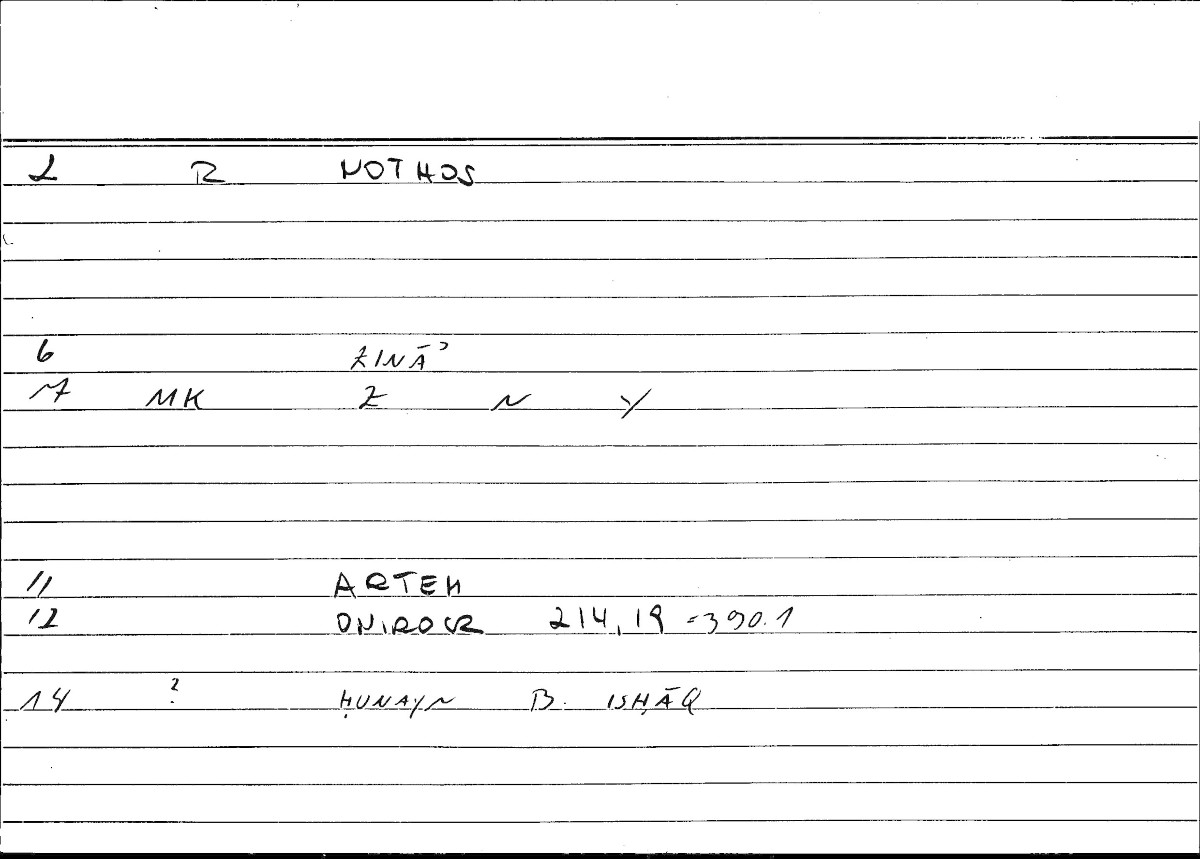 2 R NOTHOS
6 ZINĀʾ
7 MK Z N Y
11 ARTEM
12 ONIROCR 214,19 =390.1
14 ? ḤUNAYN B. ISḤĀQ